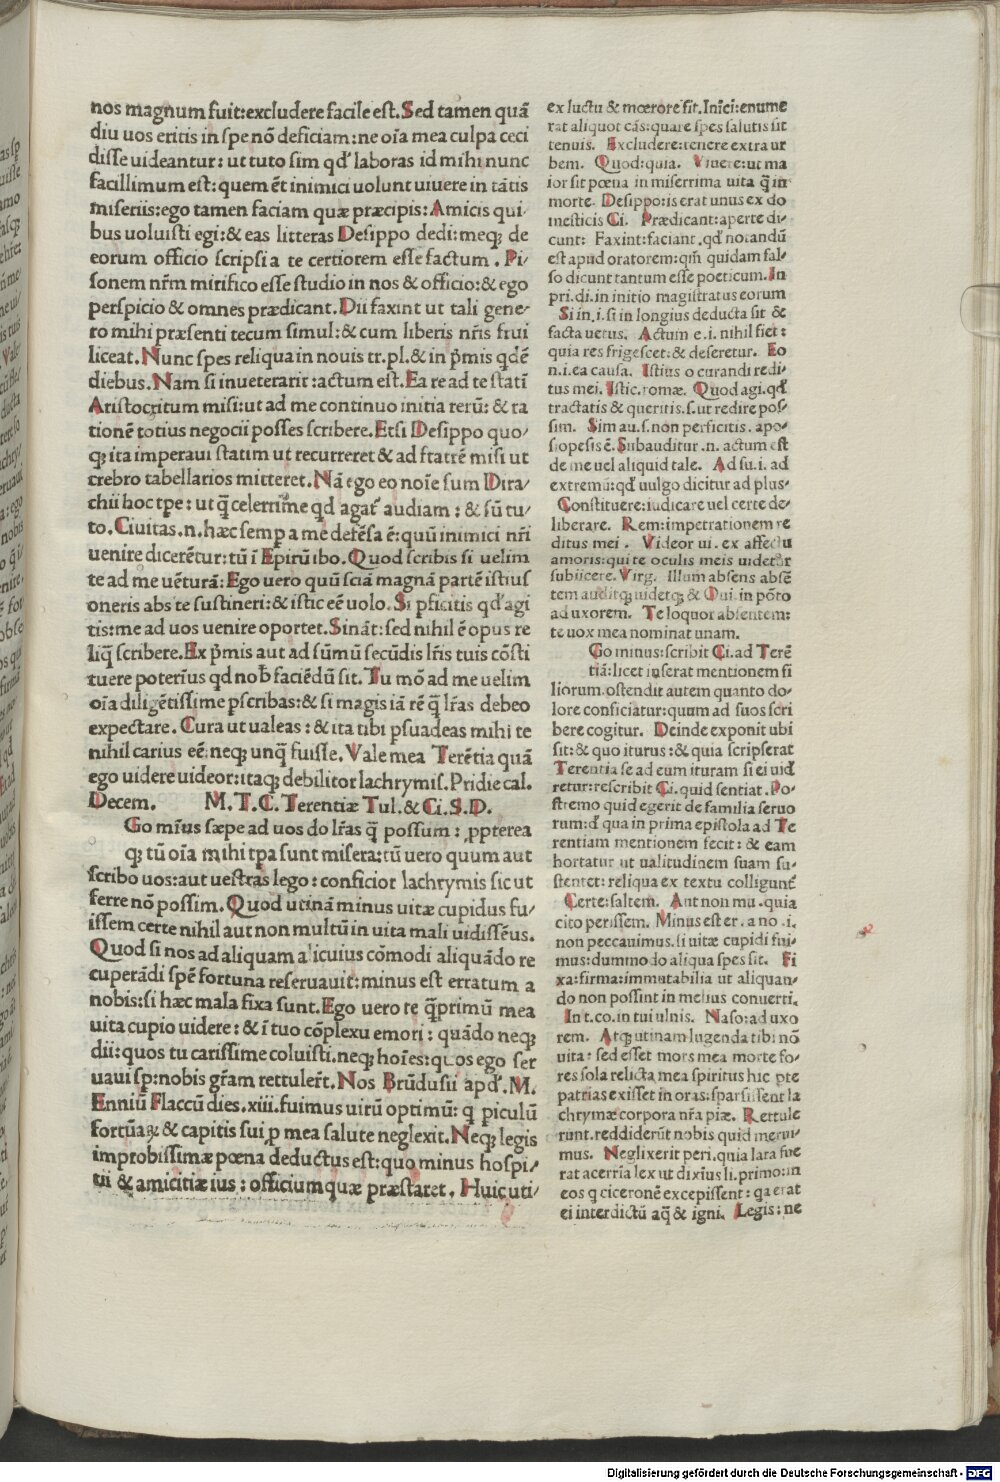 nos magnum fuit:excludere facile est.Sed tamen quã
diu uos eritis in spe nõ deficiam:ne oĩa mea culpa ceci
disse uideantur:ut tuto sim qđ laboras id mihi nunc
facillimum est:quem ẽt inimici uolunt uiuere in tãtis
miseriis:ego tamen faciam quæ præcipis:Amicis qui/
bus uoluisti egi:& eas litteras Desippo dedi:meq; de
eorum officio scripsi a te certiorem esse factum. Pi/
sonem nr̃m mirifico esse studio in nos & officio:& ego
perspicio & omnes prædicant.Dii faxint ut tali gene/
ro mihi præsenti tecum simul:& cum liberis nr̃is frui
liceat.Nunc spes reliqua in nouis tr.pl.& in p̃mis qdẽ
diebus.Nam si inueterarit:actum est.Ea re ad te statĩ
Aristocritum misi:ut ad me continuo initia rerũ: & ra
tionẽ totius negocii posses scribere.Etsi Desippo quo/
q; ita imperaui statim ut recurreret & ad fratrẽ misi ut
crebro tabellarios mitteret.Nã ego eo noĩe sum Dira/
chii hoc tpe: ut q̃ celerrime qd agat̃ audiam: & sũ tu/
to.Ciuitas.n.hæc semp a me defẽsa ẽ:quũ inimici nr̃i
uenire dicerẽtur:tũ ĩ Epirũ ibo.Quod scribis si uelim
te ad me uẽturã:Ego uero quũ sciã magnã partẽ istius
oneris abs te sustineri:& istic eẽ uolo.Si pficitis qđ agi
tis:me ad uos uenire oportet.Sinãt:sed nihil ẽ opus re
liq̃ scribere.Ex p̃mis aut ad sũmũ secũdis lr̃is tuis cõsti
tuere poterĩus qd nob̃ faciẽdũ sit. Tu mõ ad me uelim
oĩa diligẽtissime pscribas:& si magis iã rẽ q̃ lr̃as debeo
expectare. Cura ut ualeas: & ita tibi psuadeas mihi te
nihil carius eẽ:neq; unq̃ fuisse. Vale mea Terẽtia quã
ego uidere uideor:itaq; debilitor lachrymis.Pridie cal.
Decem. M.T.C.Terentiæ Tul.& Ci.S.D.
Go mĩus sæpe ad uos do lr̃as q̃ possum: ppterea
q; tũ oĩa mihi tpa sunt misera:tũ uero quum aut
scribo uos:aut uestras lego:conficior lachrymis sic ut
ferre nõ possim. Quod utinã minus uitæ cupidus fu/
issem certe nihil aut non multũ in uita mali uidissẽus.
Quod si nos ad aliquam alicuius cõmodi aliquãdo re
cuperãdi spẽ fortuna reseruauit:minus est erratum a
nobis:si hæc mala fixa sunt.Ego uero te q̃ptimũ mea
uita cupio uidere:& ĩ tuo cõplexu emori: quãdo neq;
dii:quos tu carissime coluisti.neq; hoĩes:quos ego ser
uaui sp:nobis gr̃am rettuler̃t.Nos Brũdusii apđ.M.
Enniũ Flaccũ dies.xiii.fuimus uirũ optimũ: q piculũ
fortũaꝝ & capitis sui p mea salute neglexit.Neq; legis
improbissimæ pœna deductus est:quo minus hospi/
tii & amicitiæ ius: officiumquæ præstaret. Huic uti/
ex luctu & mœrore sit.Inĩci:enume
rat aliquot cãs:quare spes salutis sit
tenuis. Excludere:tenere extra ur
bem. Quod:quia. Viuere:ut ma
ior sit pœna in miserrima uita q̃ in
morte. Desippo:is erat unus ex do
mesticis Ci. Prædicant:aperte di/
cunt: Faxint:faciant.qđ notandũ
est apud oratorem:qm̃ quidam fal/
so dicunt tantum esse poeticum.In
pri.di.in initio magistratus eorum
Si in.i.si in longius deducta sit &
facta uetus. Actum e.i. nihil fiet:
quia res frigescet:& deseretur. Eo
n.i.ea causa. Istius o curandi redi/
tus mei. Istic.romæ. Quod agi.qđ
tractatis & queritis.s.ut redire pos/
sim. Sim au.s.non perficitis. apo/
siopesis ẽ.Subauditur.n.actum est
de me uel aliquid tale. Ad su.i.ad
extremũ:qđ uulgo dicitur ad plus/
Constituere:iudicare uel certe de/
liberare. Rem:impetrationem re
ditus mei. Videor ui. ex affectu
amoris:qui te oculis meis uidetur
subiicere.Virg. Illum absens absẽ
tem auditq;uidetq; & Oui.in põto
ad uxorem. Te loquor absentem:
te uox mea nominat unam.
Go minus:scribit Ci.ad Terẽ
tiã:licet inserat mentionem fi
liorum.ostendit autem quanto do/
lore conficiatur:quum ad suos scri
bere cogitur. Deinde exponit ubi
sit:& quo iturus:& quia scripserat
Terentia se ad eum ituram si ei uid
retur:rescribit Ci.quid sentiat.Po/
stremo quid egerit de familia seruo
rum:đ qua in prima epistola ad Te
rentiam mentionem fecit: & eam
hortatur ut ualitudinem suam su/
stentet:reliqua ex textu colligunt̃
Certe:saltem. Aut non mu.quia
cito perissem. Minus est er.a no.i.
non peccauimus.si uitæ cupidi fui/
mus:dummodo aliqua spes sit. Fi
xa:firma:immutabilia ut aliquan/
do non possint in melius conuerti.
In t.co.in tui ulnis. Naso:ad uxo
rem. Atq;utinam lugenda tibi nõ
uita: sed esset mors mea morte fo/
res sola relicta mea spiritus hic pte
patrias exisset in oras:sparsissent la
chrymæ corpora nr̃a piæ. Rettule
runt.reddiderũt nobis quid merui/
mus. Neglixerit peri.quia lata fue
rat acerrĩa lex ut dixĩus li.primo:in
eos q ciceronẽ excepissent: qa erat
ei interdictũ aq̃ & igni. Legis:ne
Digitalisierung gefördert durch die Deutsche Forschungsgemeinschaft - DFG